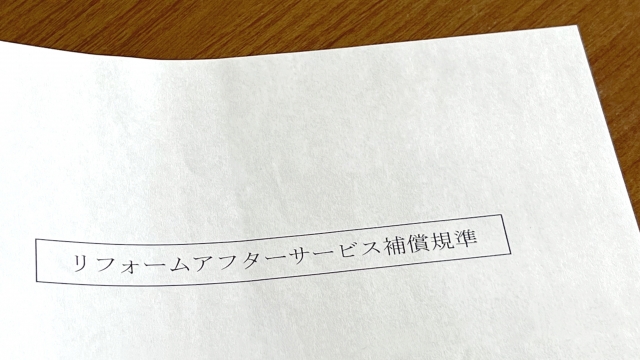 リフォームアフターサービス補償規準